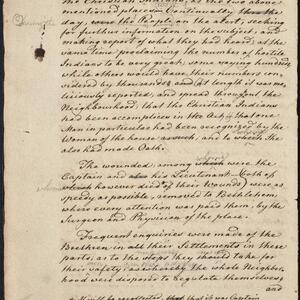 the Christian Indians, at the two above
mentioned places in Company, thro' the
During the day, were the People on the alert, seeking
for further information on the subject, and
making report of what they had heard; at the
same time proclaiming the number of hostile
Indians to be very great; some saying hundreds,
while others would have, their numbers con-
sidered by thousands and at length it was ma-
liciously reported, and spread throughout the
Neighbourhood, that the Christian Indians
had been accomplices in the Act, that one
Man in particular had been recognized by the
Woman of the house as such, and to which She
also had made Oath.
The wounded, among which were the
Captain and also his Lieutenant (both of
which however died of their Wounds) were as
speedy as possible, removed to Bethlehem,
where every attention was paid them, by
the Surgeon and Physician of the place.
Frequent enquiries were made of the
Brethren in all their Settlements in these
parts, as to the steps they should take for
their safety; as whereby the whole Neighbor-
hood were disposed to regulate themselves
and
it will be recollected, that it was Captain